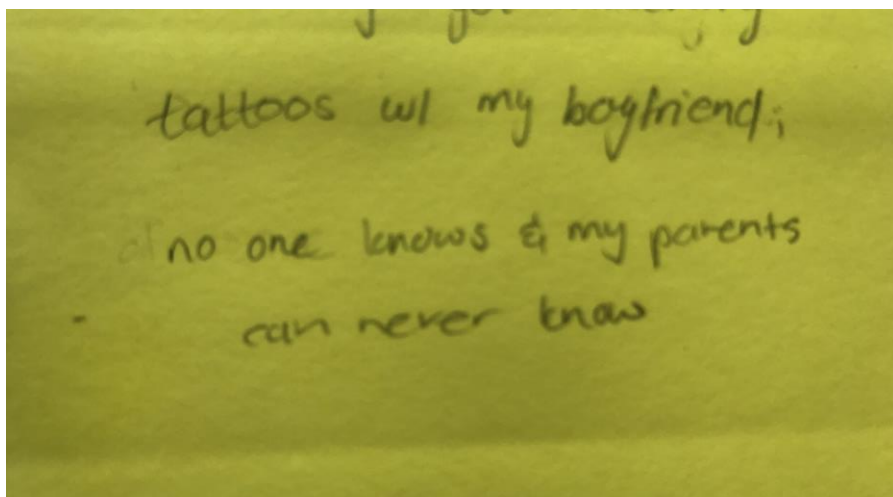 tattoos w/ my boyfriend;
no one knows & my parents
can never know